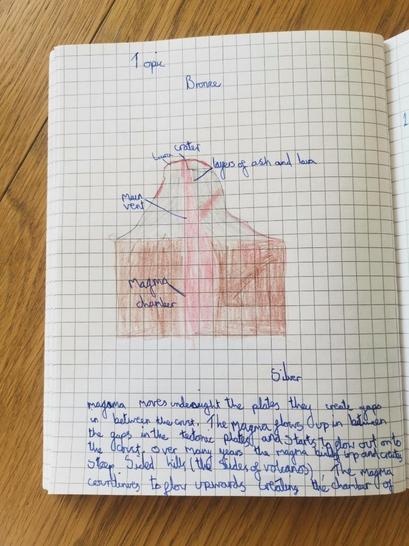 Topic
Bronze
crater
Lava
layers of ash and lava
main
vent
Magma
chamber
Silver
magama moves underneight the plates they create gaps
in between the crust. The Magma flows up in between
the gaps in the tectonic plates and starts to flow out onto
the crust. over many years the magma builds up and creates
steep sided hills (the sides of volcanos). The magma
countinues to flow upwards creating the chamber of